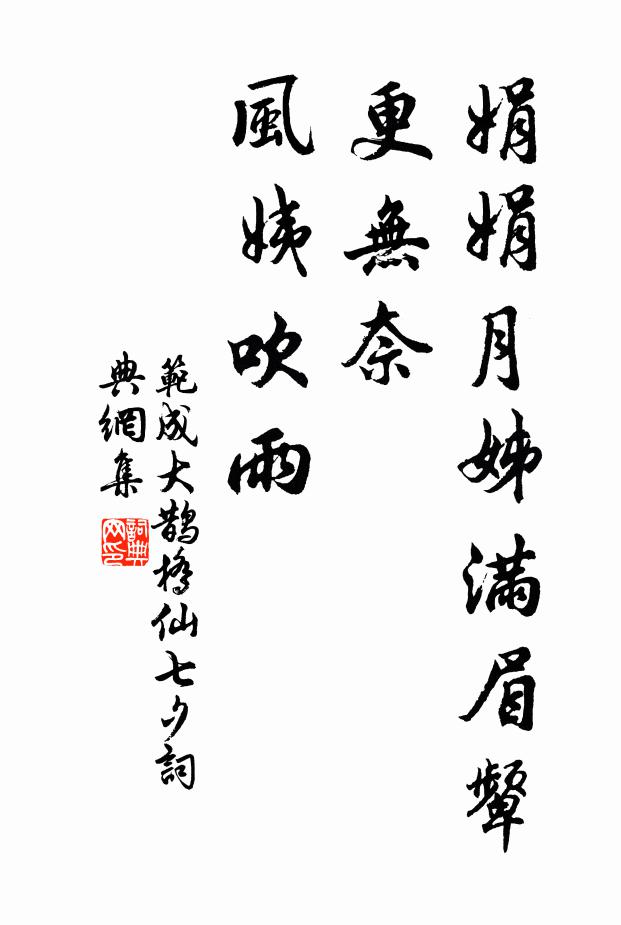 娟娟月姊滿眉顰
更無奈
風姨吹雨
範成大鵲橋仙七夕詞
典網集
詞典
网印